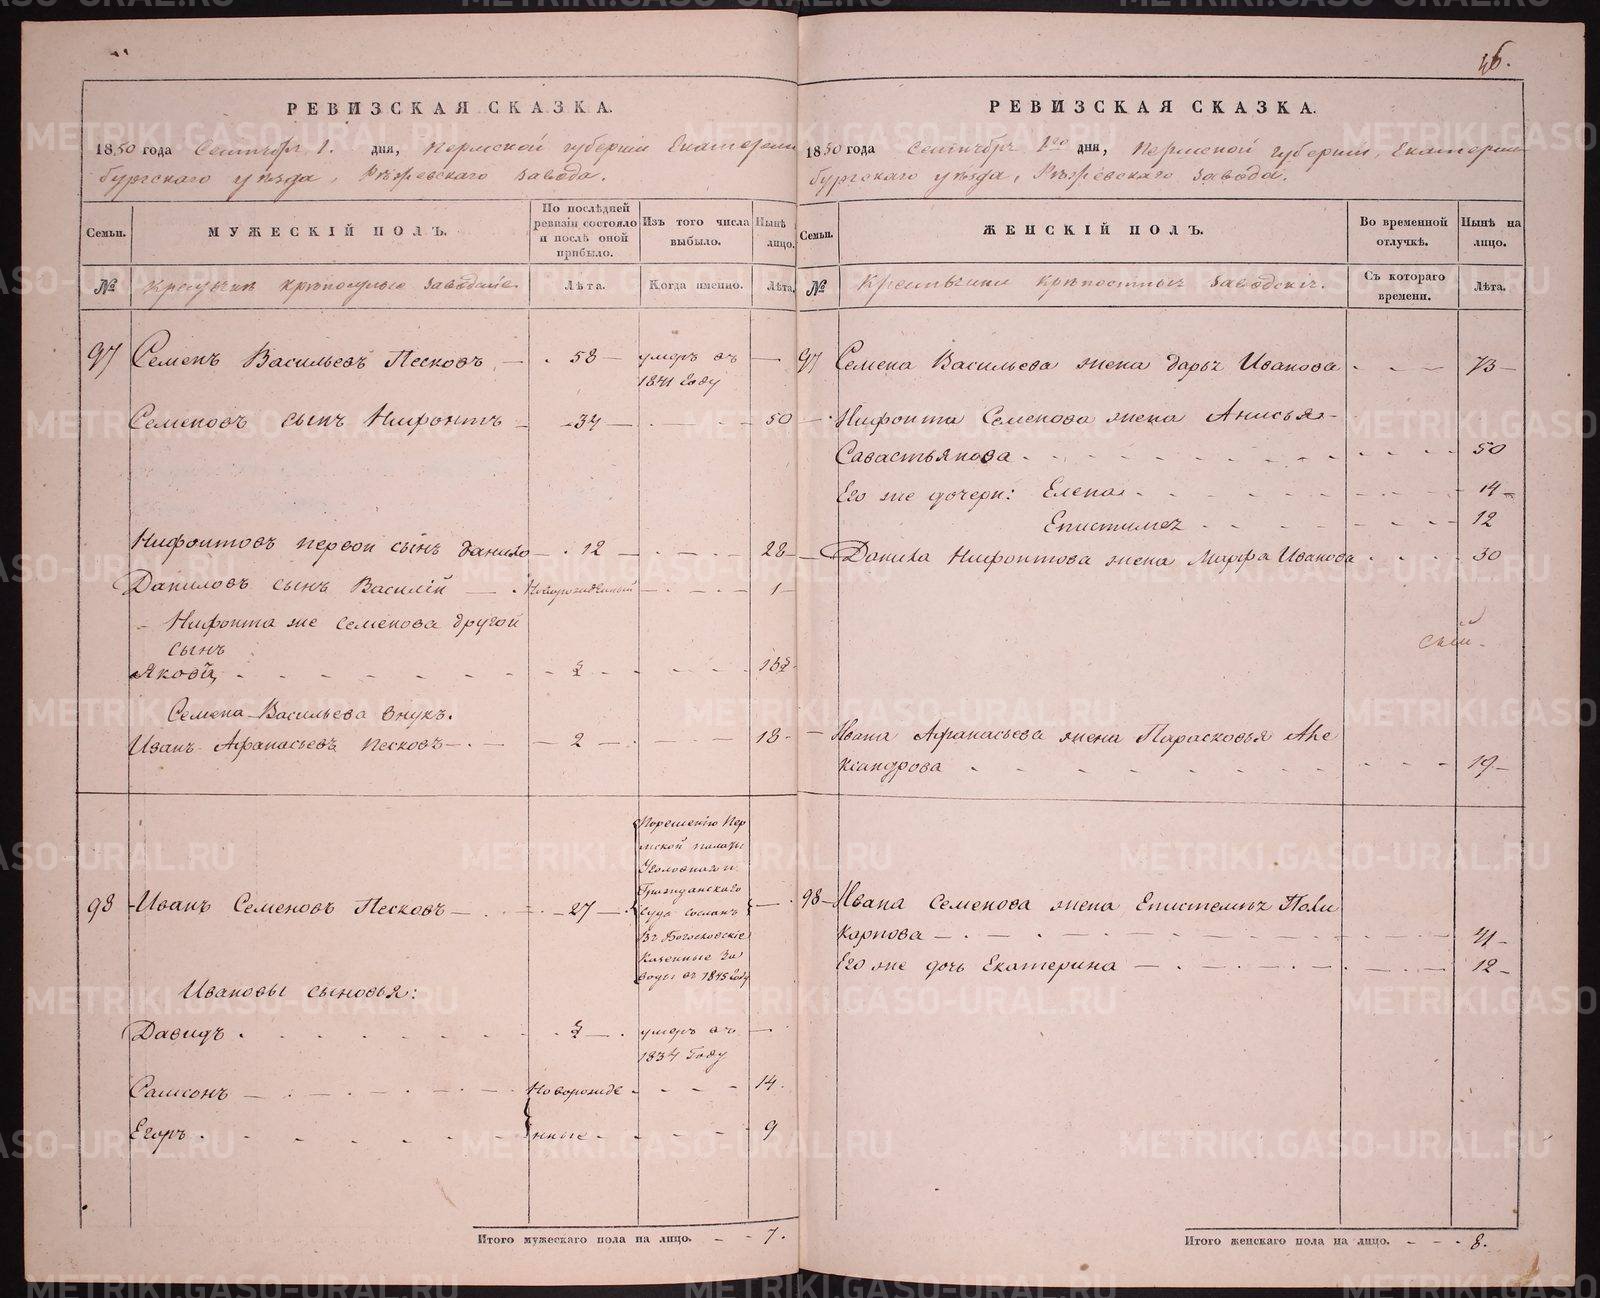 46.
РЕВИЗСКАЯ СКАЗКА.
1850 года Сентября 1. дня, Пермской губернии Екатерин
бургскаго уѣзда, Рѣжевскаго завода.
Семьи.
МУЖЕСКІЙ ПОЛЪ.
По послѣдней ревизіи состояло и послѣ оной прибыло.
Изъ того числа выбыло.
Нынѣ на лицо.
№
заводскіе.
Лѣта.
Когда именно.
Лѣта.
97 Семенъ Васильевъ Песковъ — 58 — умеръ въ —
1841 году
Семеновъ сынъ Нифонтъ — 34 — 50
Нифонтовъ первой сынъ Данило — 12 — 28
Даниловъ сынъ Василій — Новорожденный — 1
Нифонта же Семенова другой
сынъ
Яковъ
Семена Васильева внукъ.
Иванъ Афанасьевъ Песковъ — 2 — 18
98 Иванъ Семеновъ Песковъ — 27 —
По решенію Пер
мской палаты
Уголовнаго и
Гражданскаго
Суда сосланъ
Въ Богословскіе
Казенные За
воды въ 1845 году
Ивановы сыновья:
Давидъ — умеръ въ —
1834 Году
Самсонъ — Новорожде — 14
Егоръ — нные — 9
Итого мужескаго пола на лицо. — 7.
РЕВИЗСКАЯ СКАЗКА.
1850 года Сентября 1го дня, Пермской губерніи, Екатерин
бургскаго уѣзда, Рѣжевскаго завода.
Семьи.
ЖЕНСКІЙ ПОЛЪ.
Во временной отлучкѣ.
Нынѣ на лицо.
№
заводскіх.
Съ котораго времени.
Лѣта.
97 Семена Васильева жена Дарья Иванова — 73
Нифонта Семенова жена Анисья
Савастьянова — 50
Его же дочери: Елена — 14
Епистимея — 12
Данила Нифонтова жена Марфа Иванова — 30
Ивана Афанасьева жена Парасковья Але
ксандрова — 19
98 Ивана Семенова жена Епистемея Поли
карпова — 41
Его же дочь Екатерина — 12
Итого женскаго пола на лицо. — 8.
METRIKI.GASO-URAL.RU